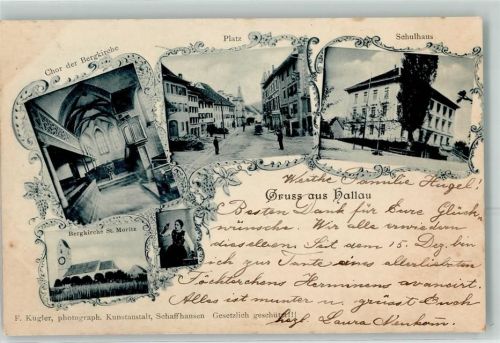 Chor der Bergkirche
Platz
Schulhaus
Bergkirche St. Moritz
Gruss aus Hallau
Werthe Familie Hugel!
Besten Dank für Eure Glück-
wünsche. Wir alle erwiedern
dieselben. Seit dem 15. Dez. bin
ich zur Tante eines allerliebsten
Töchterchens Herminens avansirt.
Alles ist munter u. grüsst Euch
herzl. Laura
F. Kugler, photograph. Kunstanstalt, Schaffhausen Gesetzlich geschützt!!!